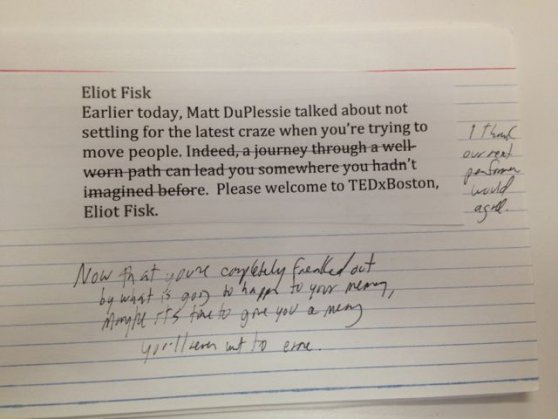 Eliot Fisk
Earlier today, Matt DuPlessie talked about not
settling for the latest craze when you're trying to
move people. Indeed, a journey through a well-
worn path can lead you somewhere you hadn't
imagined before. Please welcome to TEDxBoston,
Eliot Fisk.
I think
our next
performer
would
agree.
Now that you're completely freaked out
by what is going to happen to your memory,
maybe it's time to give you a memory
you'll never want to erase.